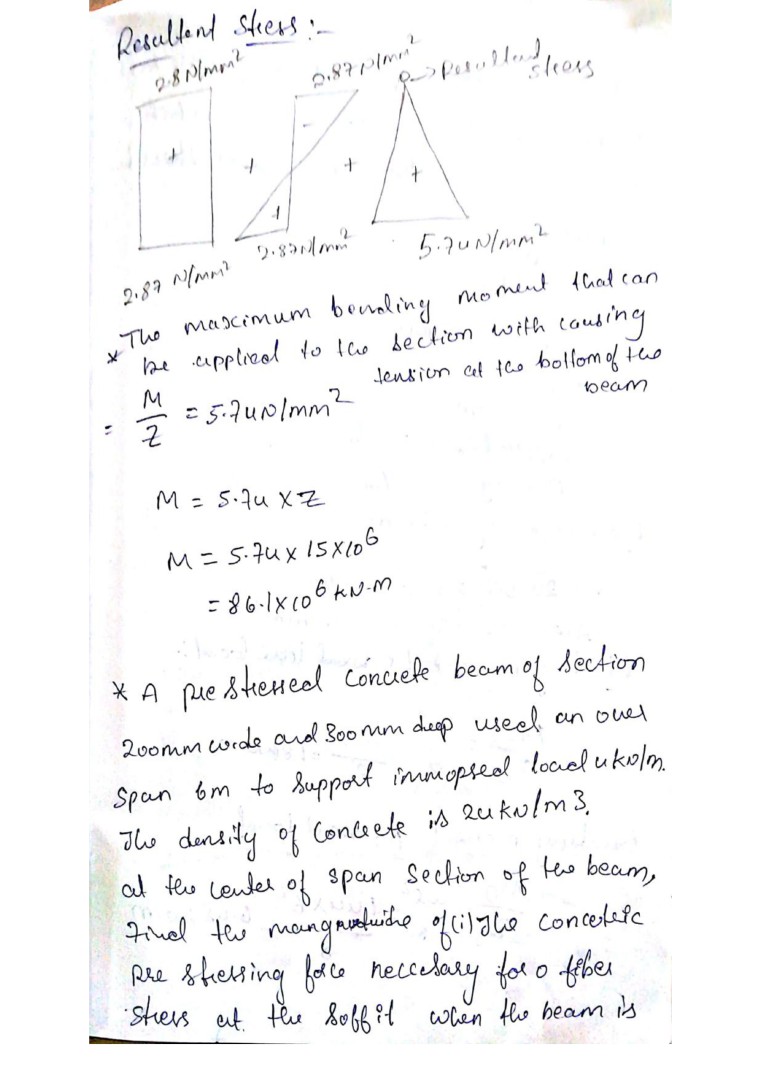 Resultent stress :-
2.8 N/mm²
2.87 N/mm²
0 → Resultend
stress
+
+
-
+
+
+
2.87 N/mm²
2.87 N/mm²
5.74 N/mm²
* The maximum bending moment that can
be applied to the section with causing
tension at the bottom of the
beam
= M/Z = 5.74 N/mm²
M = 5.74 × Z
M = 5.74 × 15 × 10⁶
= 86.1 × 10⁶ kN-m
* A pre stressed concrete beam of section
200mm wide and 300mm deep used an over
span 6m to support immopsed load 4 kN/m.
The density of concrete is 24 kN/m3.
at the center of span section of the beam,
Find the of (i) The concetric
pre stressing force neccesary for 0 fiber
stress at the soffit when the beam is